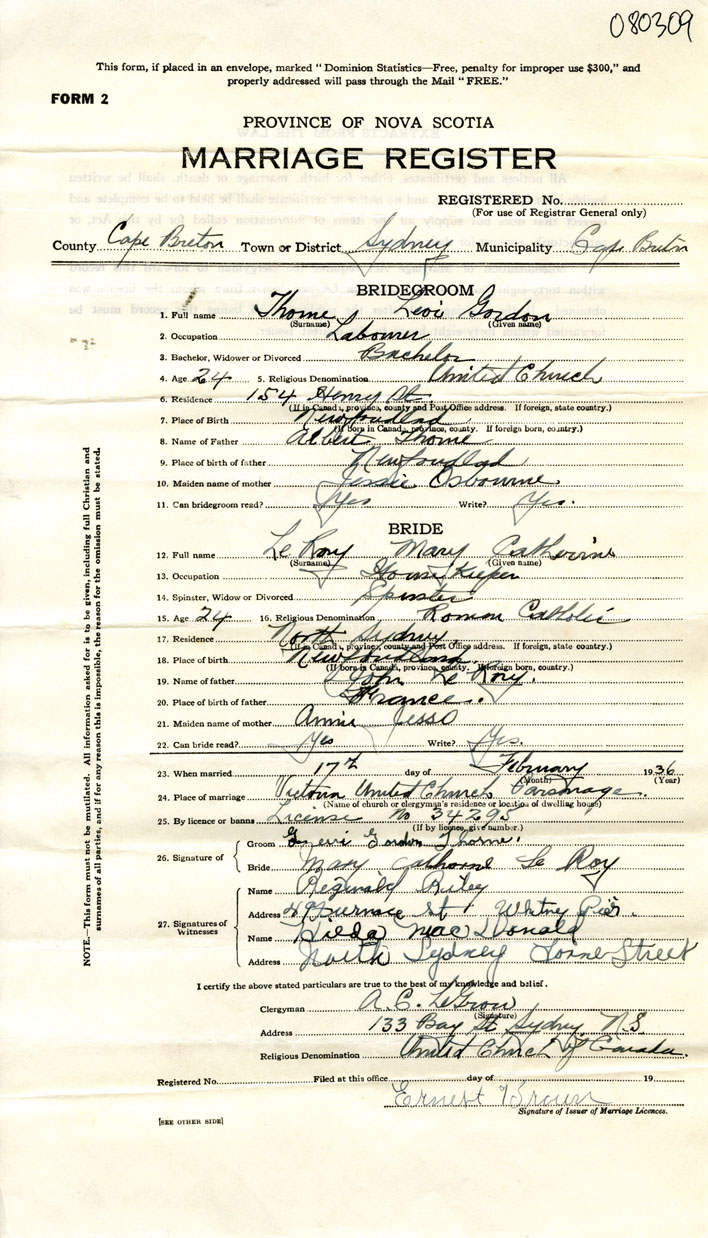 080309
This form, if placed in an envelope, marked "Dominion Statistics—Free, penalty for improper use $300," and
properly addressed will pass through the Mail "FREE."
FORM 2
PROVINCE OF NOVA SCOTIA
MARRIAGE REGISTER
REGISTERED No.
(For use of Registrar General only)
County Cape Breton Town or District Sydney Municipality Cape Breton
BRIDEGROOM
1. Full name Thorne Levi Gordon
(Surname) (Given name)
2. Occupation Labourer
3. Bachelor, Widower or Divorced Bachelor
4. Age 24 5. Religious Denomination United Church
6. Residence 154 Henry St.
(If in Canada, province, county and Post Office address. If foreign, state country.)
7. Place of Birth Newfoundland
(If born in Canada, province, county. If foreign born, country.)
8. Name of Father Albert Thorne
9. Place of birth of father Newfoundland
10. Maiden name of mother Jessie Osbourne
11. Can bridegroom read? Yes Write? Yes.
BRIDE
12. Full name Le Roy Mary Catherine
(Surname) (Given name)
13. Occupation House Kieper
14. Spinster, Widow or Divorced Spinster
15. Age 24 16. Religious Denomination Roman Catholic
17. Residence North Sydney
(If in Canada, province, county and Post Office address. If foreign, state country.)
18. Place of birth Newfoundland
(If born in Canada, province, county. If foreign born, country.)
19. Name of father John Le Roy.
20. Place of birth of father France.
21. Maiden name of mother Annie Jesso
22. Can bride read? Yes Write? Yes.
23. When married 17th day of February 1936
(Month) (Year)
24. Place of marriage Victoria United Church Parsonage.
(Name of church or clergyman's residence or location of dwelling house)
25. By licence or banns License No 34295
(If by licence, give number.)
26. Signature of
Groom Levi Gordon Thorne.
Bride Mary Catherine Le Roy
27. Signatures of Witnesses
Name Reginald Riley
Address Furnace St Whitney Pier.
Name Hilda MacDonald
Address North Sydney Lorne Street
I certify the above stated particulars are true to the best of my knowledge and belief.
Clergyman A. C. LeGrow
(Signature)
Address 133 Bay St Sydney N.S
Religious Denomination United Church of Canada.
Registered No. Filed at this office day of 19
Ernest Brown
Signature of Issuer of Marriage Licences.
[SEE OTHER SIDE]
NOTE.—This form must not be mutilated. All information asked for is to be given, including full Christian and
surnames of all parties, and if for any reason this is impossible, the reason for the omission must be stated.